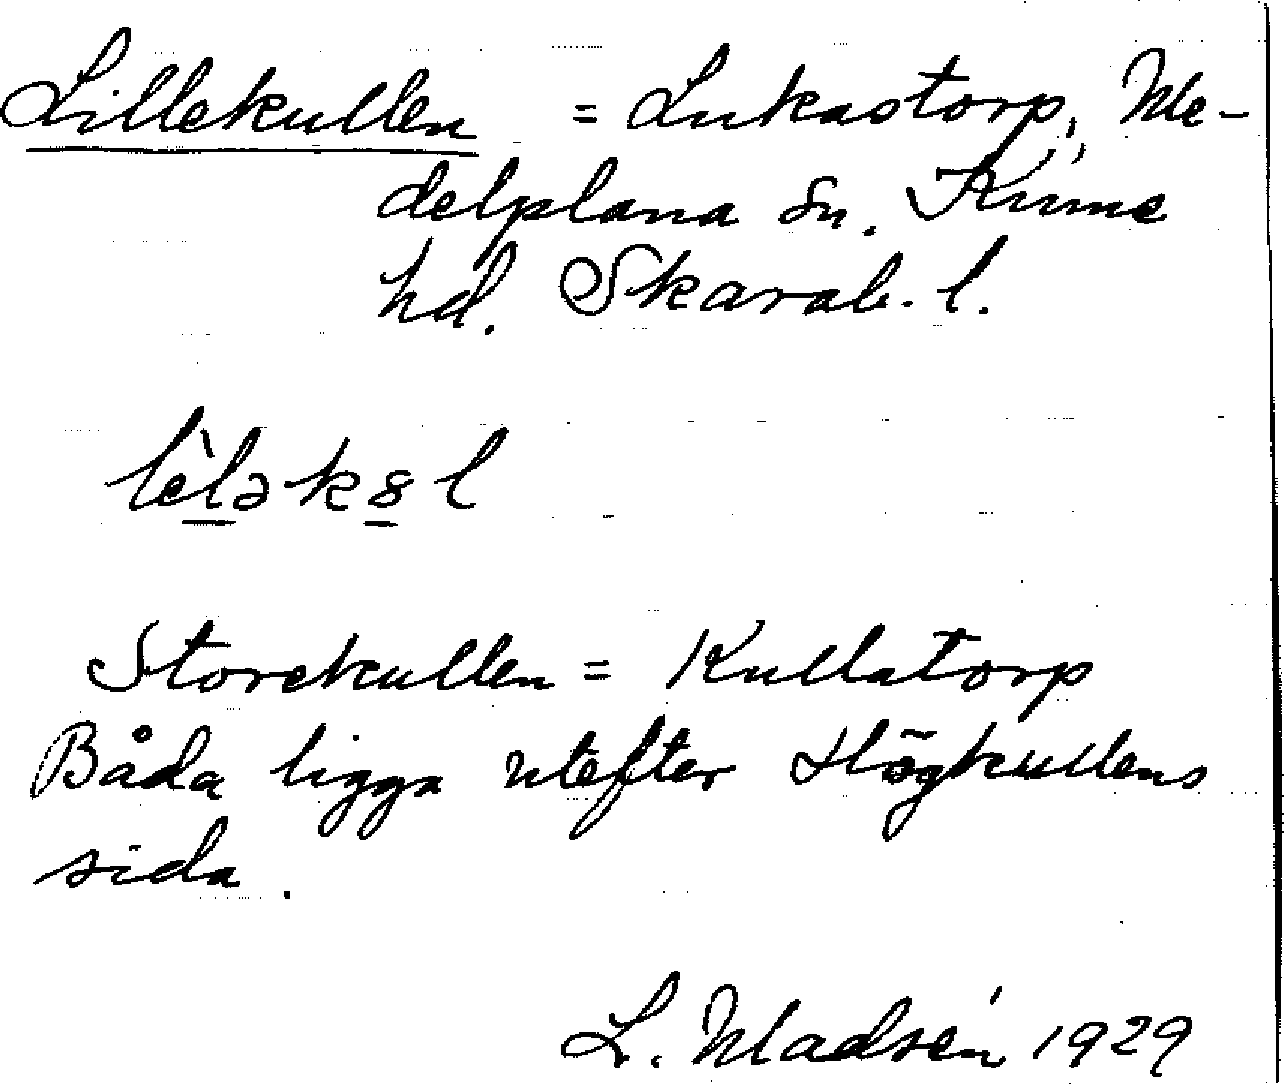 Lillekullen = Lukastorp, Me-
delplana sn. Kinne
hd. Skarab. l.
lèlək8l
Storekullen = Kullatorp
Båda ligga utefter Högkullens
sida.
L. Madsén 1929